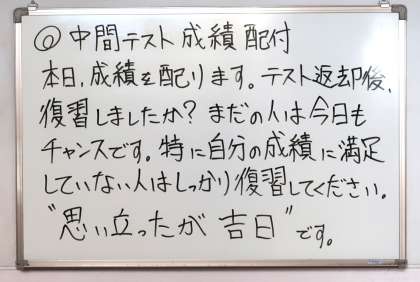 ◎ 中間テスト成績配付
本日、成績を配ります。テスト返却後、
復習しましたか？まだの人は今日も
チャンスです。特に自分の成績に満足
していない人はしっかり復習してください。
"思い立ったが 吉日"です。